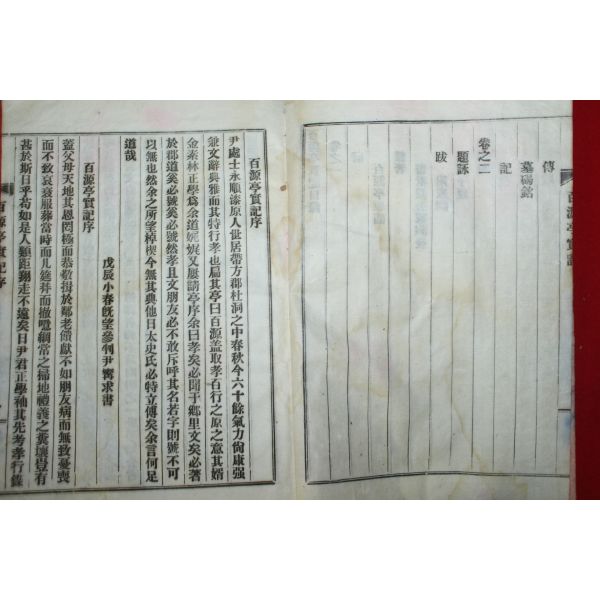 傳
墓碣銘
記
卷之二
題詠
跋
百源亭實記
百源亭實記序
尹處士永順漆原人世居帶方郡杜洞之中春秋今六十餘氣力尙康强
兼文辭典雅而其特行孝也扁其亭曰百源盖取孝百行之原之意其婿
金素林正學爲余道娓娓又屢請亭序余曰孝矣必聞于鄉里文矣必著
於郡道矣必號矣必號然孝且文朋友必不敢斥呼其名若字則號不可
以無也然余之所望棹楔今無其典他日太史氏必特立傳矣余言何足
道哉
戊辰小春旣望參判尹甯求書
百源亭實記序
蓋父母天地其恩罔極而恭敬揖於鄰老饋獻不如朋友病而無致憂喪
而不致哀衰服葬當時而几筵幷而撤嗚綱常之掃地禮義之糞壤豈有
甚於斯日乎苟如是人類距翔走不遠矣日尹君正學袖其先考孝行錄
百源亭實記序